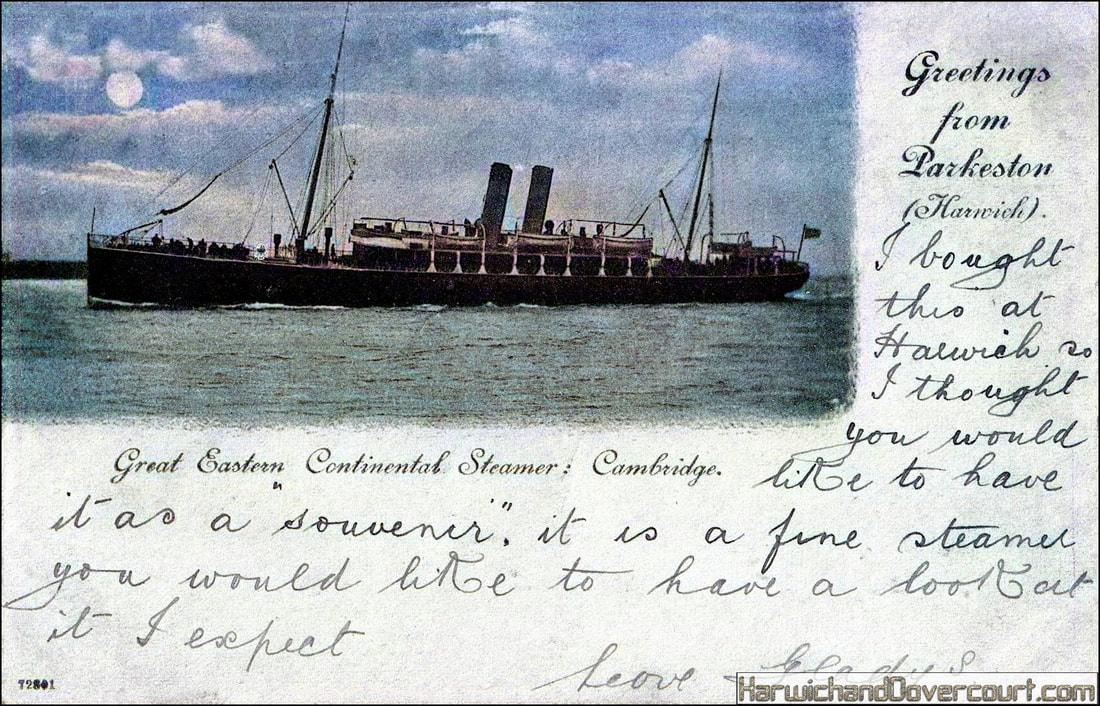 Greetings
from
Parkeston
(Harwich).
I bought
this at
Harwich so
I thought
you would
Great Eastern Continental Steamer: Cambridge.
like to have
it as a "souvenir", it is a fine steamer
you would like to have a look at
it I expect
Love Gladys
72891
HarwichandDovercourt.com